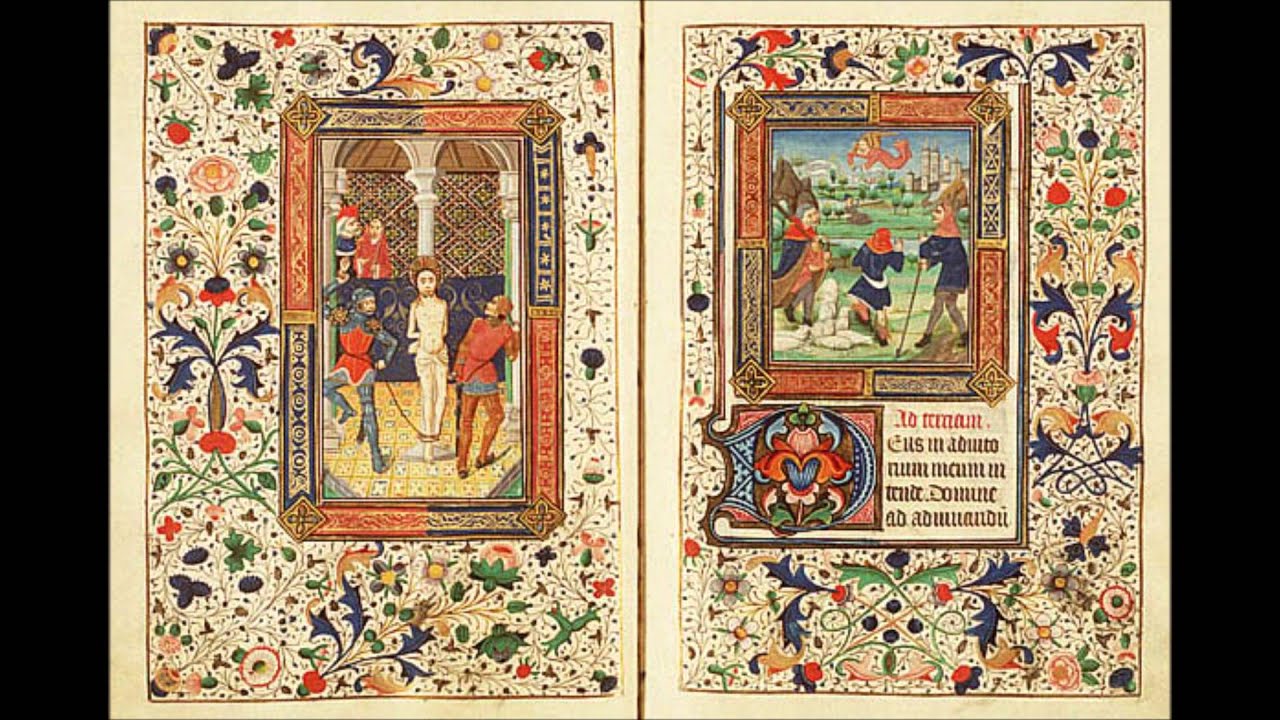 Ad terciam.
Deus in adiuto
rium meum in
tende. Domine
ad adiuuandū